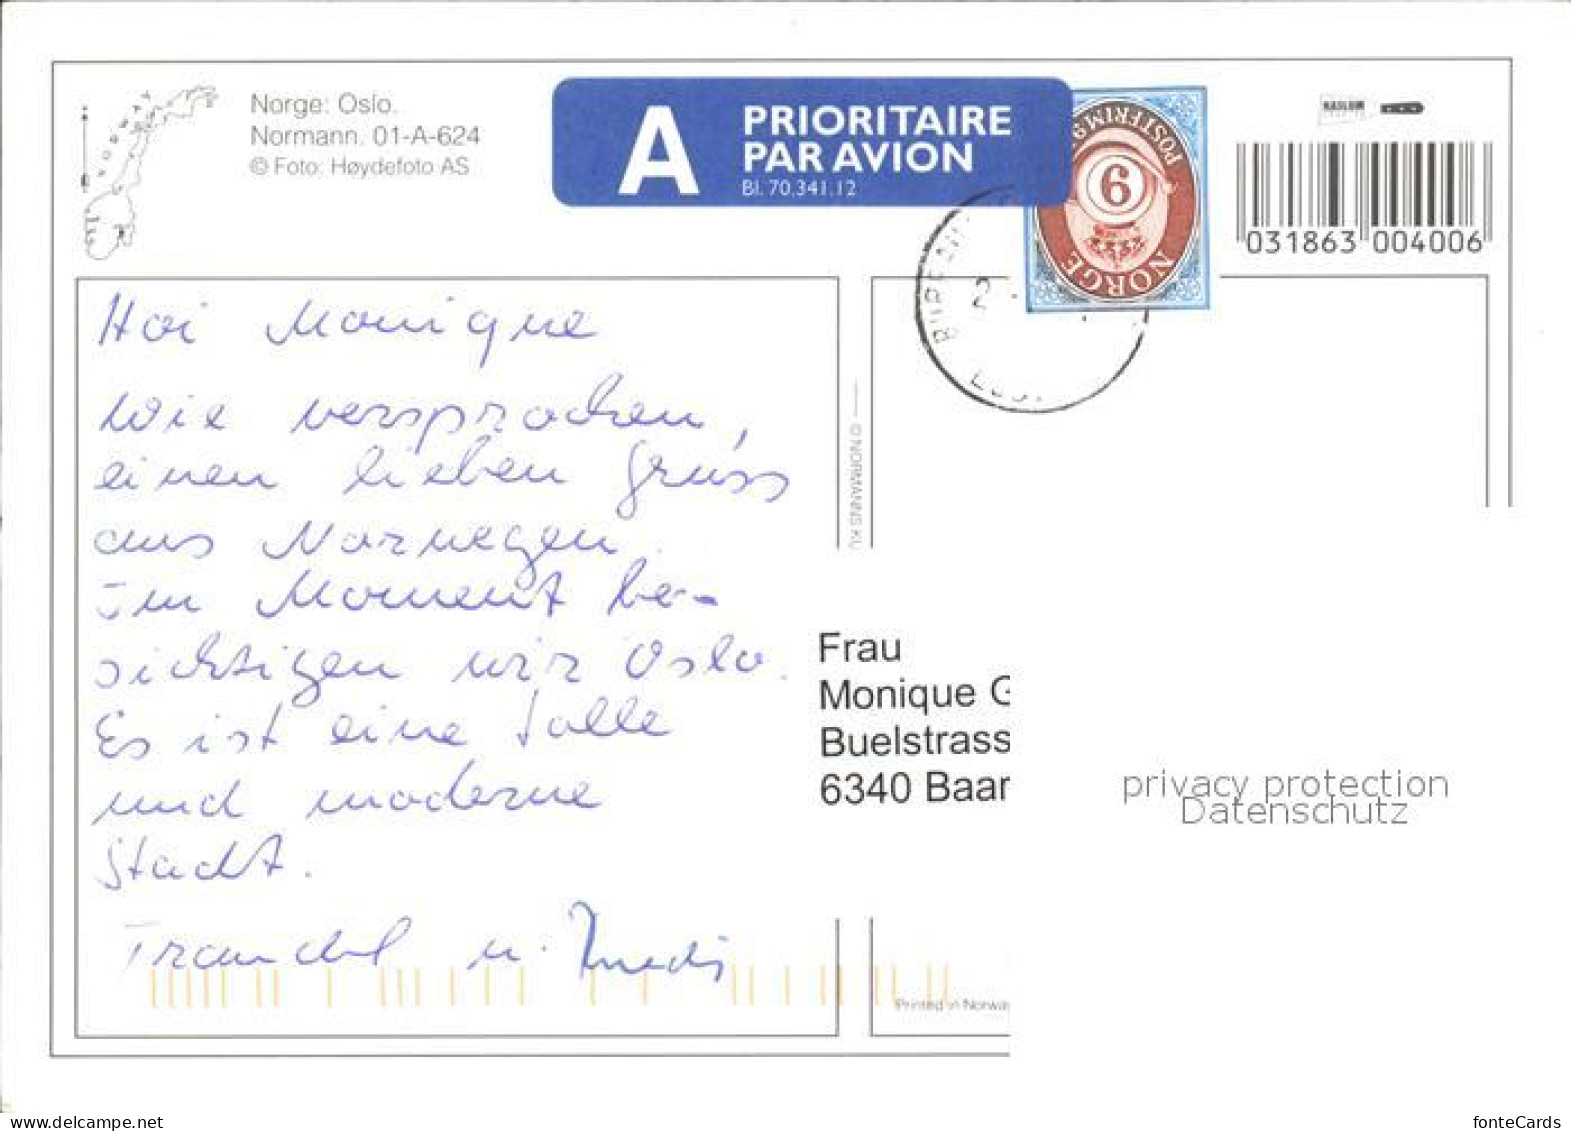 NORWAY
Norge: Oslo.
Normann. 01-A-624
© Foto: Høydefoto AS
A PRIORITAIRE
PAR AVION
Bl. 70.341.12
POSTFRIM
9
NORGE
031863 004006
Hoi Monique
Wie versprochen,
einen lieben Gruss
aus Norwegen.
Im Moment be-
sichtigen wir Oslo.
Es ist eine tolle
und moderne
Stadt.
Traudel u. Ruedi
© NORMANNS KU
Frau
Monique G
Buelstrass
6340 Baar
Printed in Norway
privacy protection
Datenschutz
delcampe.net
fonteCards